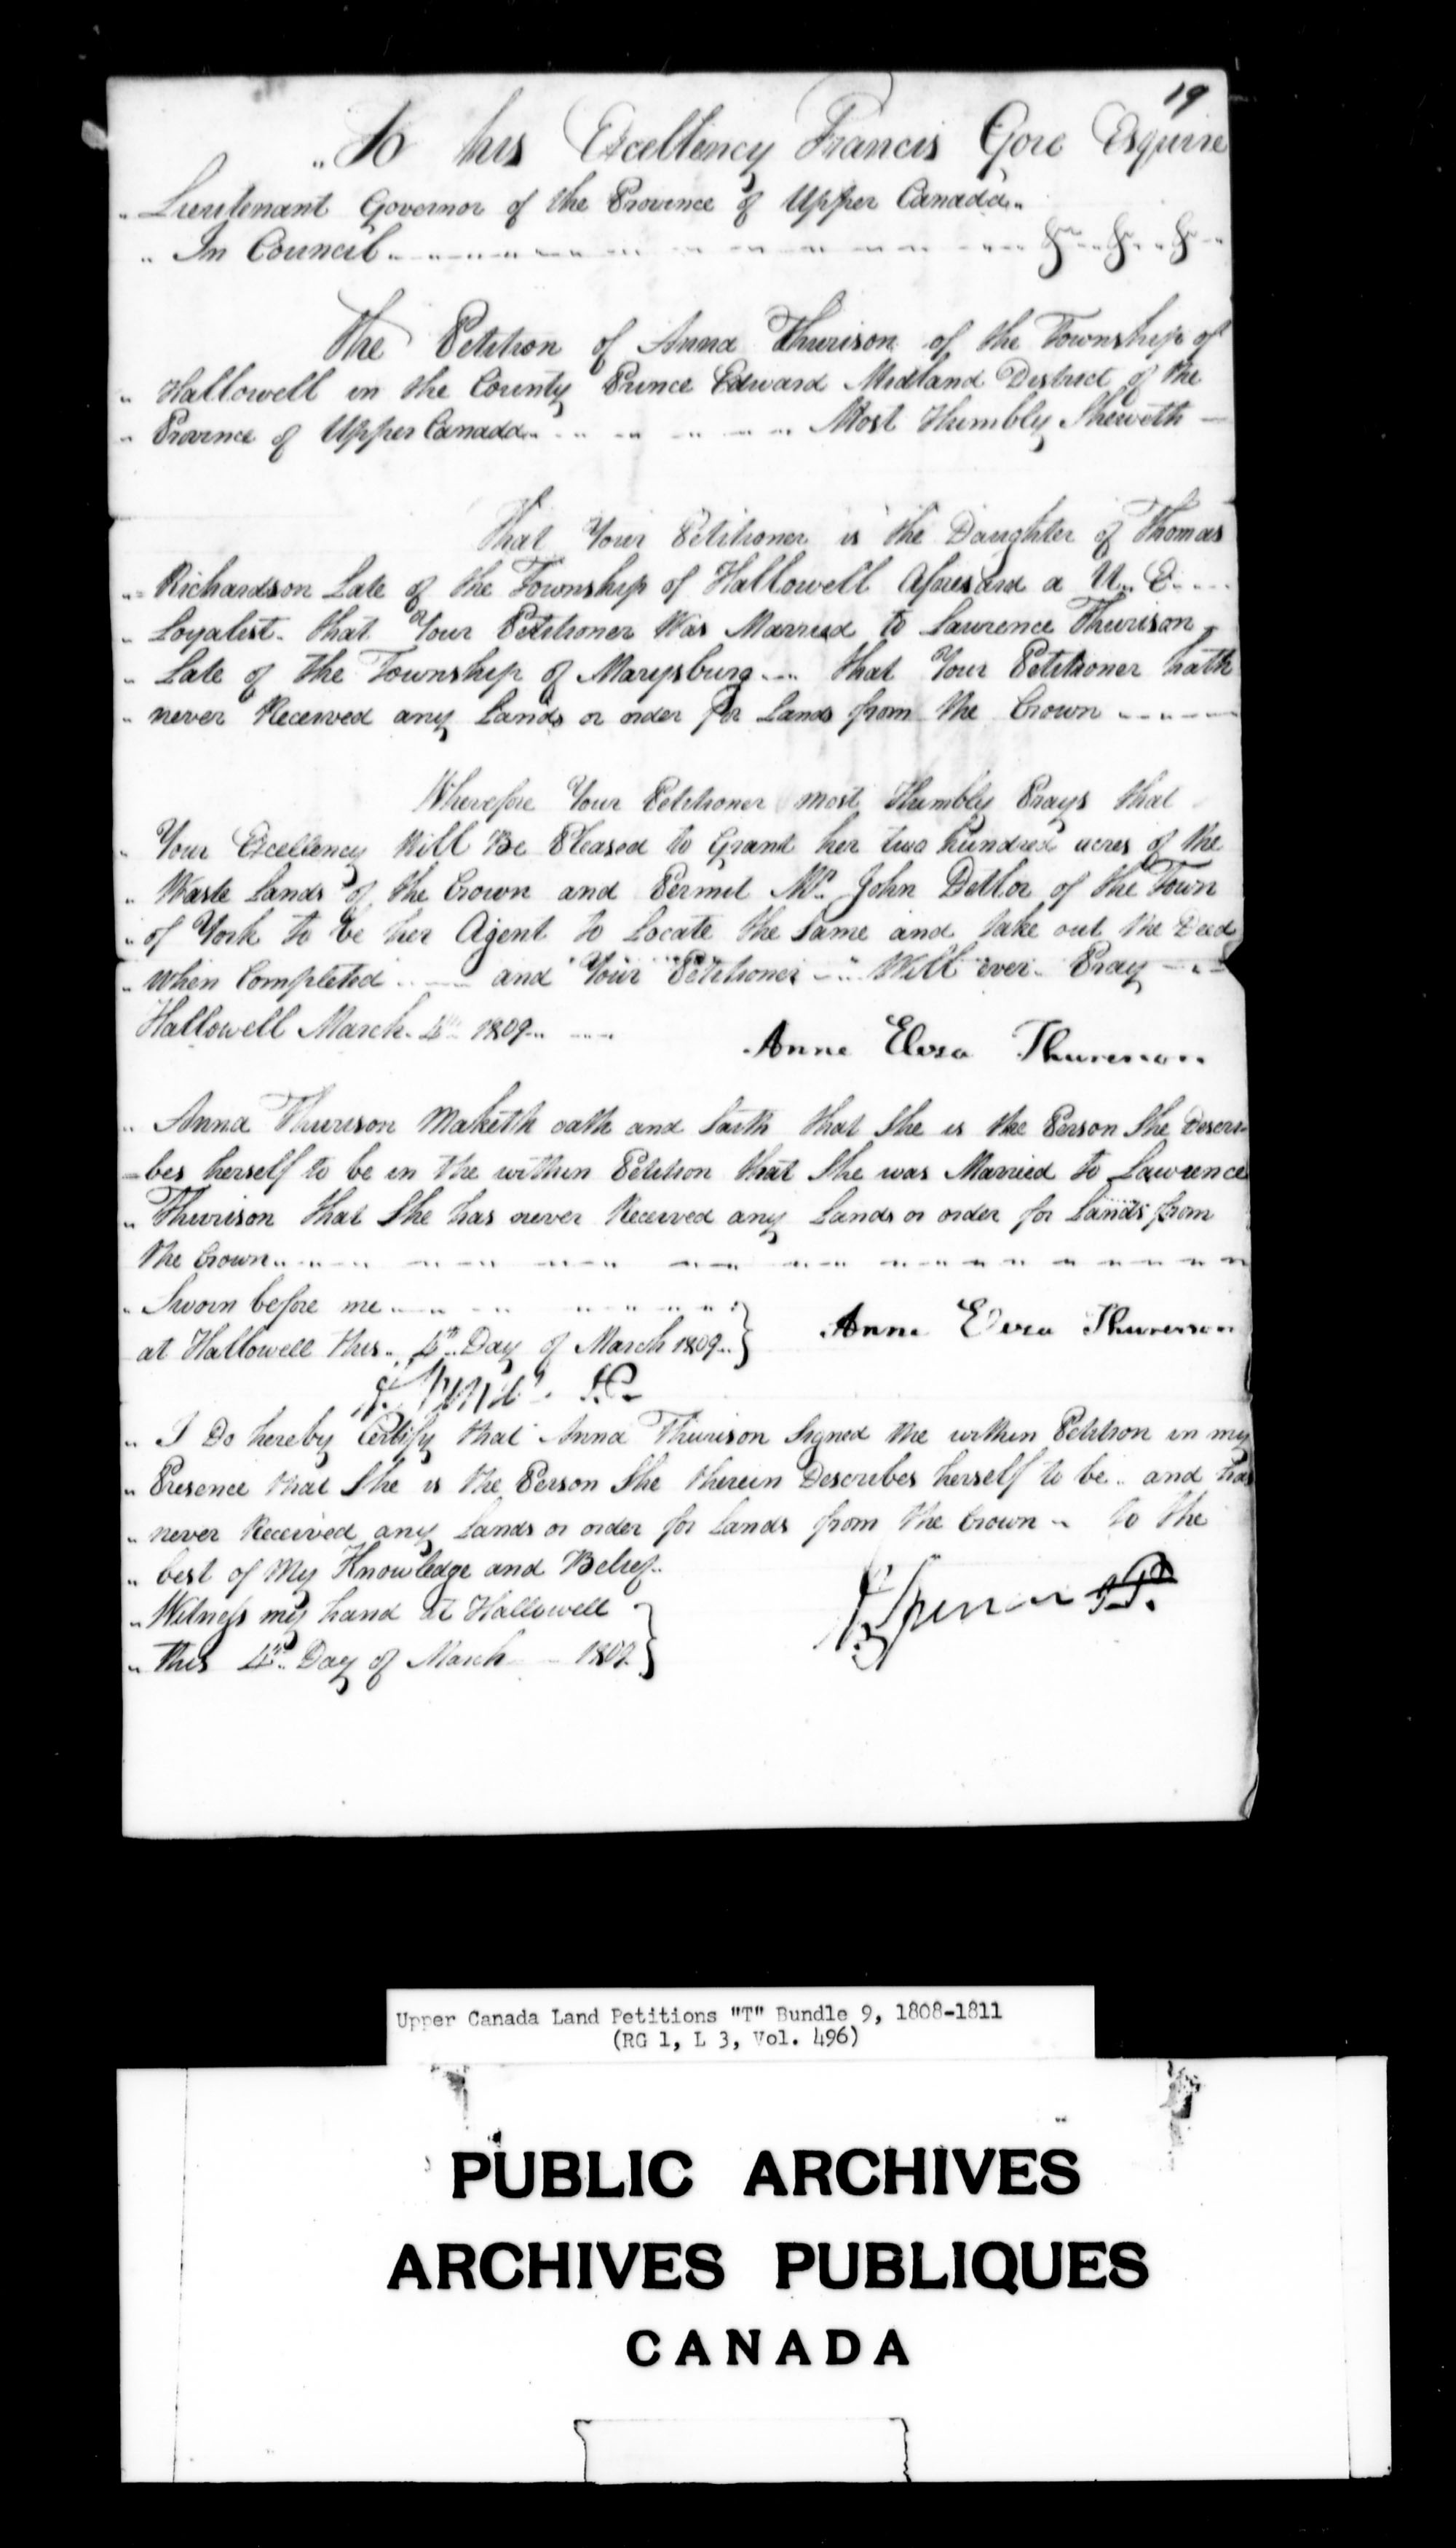 19
To his Excellency Francis Gore Esquire
Lieutenant Governor of the Province of Upper Canada
In Council &c &c &c
The Petition of Anna Thurison of the Township of
Hallowell in the County Prince Edward Midland District of the
Province of Upper Canada Most Humbly Sheweth
That Your Petitioner is the Daughter of Thomas
Richardson Late of the Township of Hallowell Aforesaid a U. E.
Loyalist. that Your Petitioner Was Married to Laurence Thurison
Late of the Township of Marysburg that Your Petitioner hath
never Received any Lands or order for Lands from the Crown
Wherefore Your Petitioner most Humbly Prays that
Your Excellency Will Be Pleased to Grant her two hundred acres of the
Waste Lands of the Crown and Permit Mr. John Detlor of the Town
of York to be her Agent to Locate the Same and take out the Deed
when Completed and Your Petitioner Will ever Pray
Hallowell March 4th 1809
Anne Thurison
Anna Thurison Maketh oath and Saith that She is the Person She Descri-
-bes herself to be in the within Petition that She was Married to Lawrence
Thurison that She has never Received any Lands or order for Lands from
the Crown
Sworn before me
at Hallowell this 4th Day of March 1809
Anne
I Do hereby Certify that Anna Thurison Signed the within Petition in my
Presence that She is the Person She therein Describes herself to be and has
never Received any Lands or order for Lands from the Crown to the
best of My Knowledge and Belief
Witness my hand at Hallowell
this 4th Day of March 1809
Upper Canada Land Petitions "T" Bundle 9, 1808-1811
(RG 1, L 3, Vol. 496)
PUBLIC ARCHIVES
ARCHIVES PUBLIQUES
CANADA